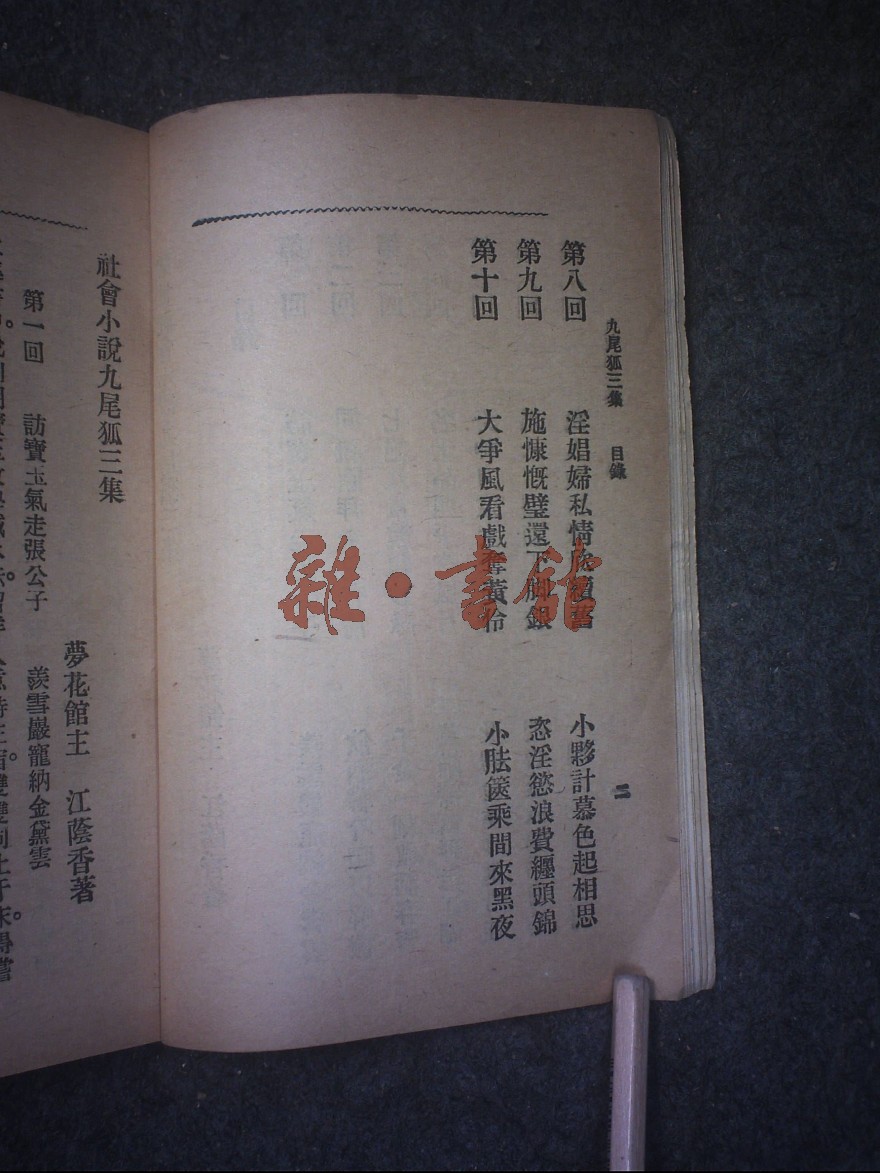 九尾狐三集　目錄　二
第八回　淫娼婦私情　小夥計慕色起相思
第九回　施慷慨璧還下脚銀　恣淫慾浪費纏頭錦
第十回　大爭風看戲奪黃伶　小胠篋乘間來黑夜
雜·書館
社會小說九尾狐三集
夢花館主　江蔭香著
第一回　訪寶玉氣走張公子　羨雪巖寵納金黛雲